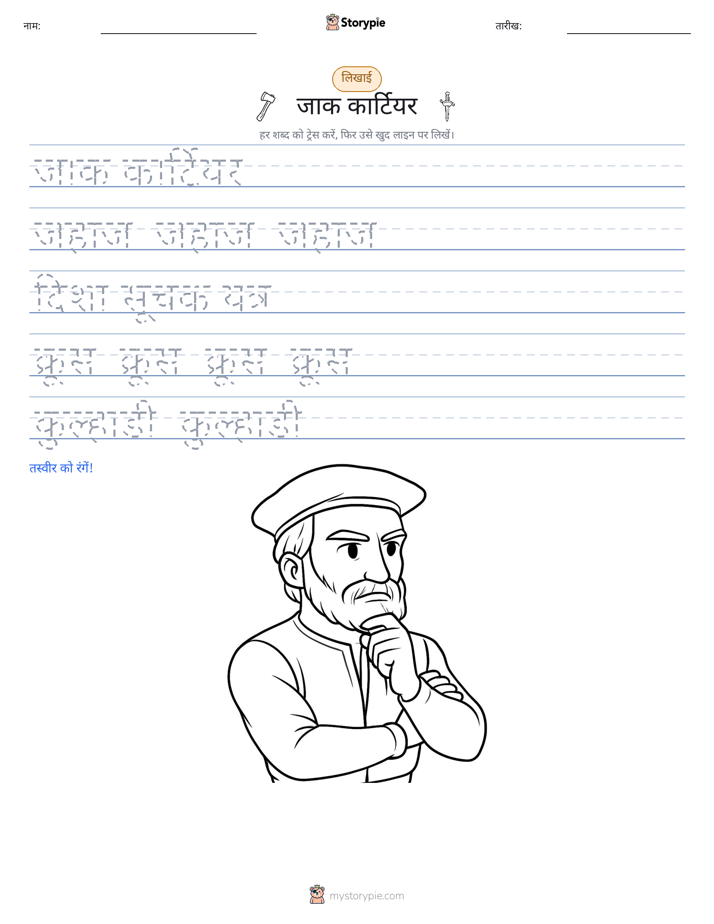 नाम:
Storypie
तारीख:
लिखाई
जाक कार्टियर
हर शब्द को ट्रेस करें, फिर उसे खुद लाइन पर लिखें।
जाक कार्टियर
जहाज जहाज जहाज
दिशा सूचक यंत्र
क्रूस क्रूस क्रूस क्रूस
कुल्हाड़ी कुल्हाड़ी
तस्वीर को रंगें!
mystorypie.com